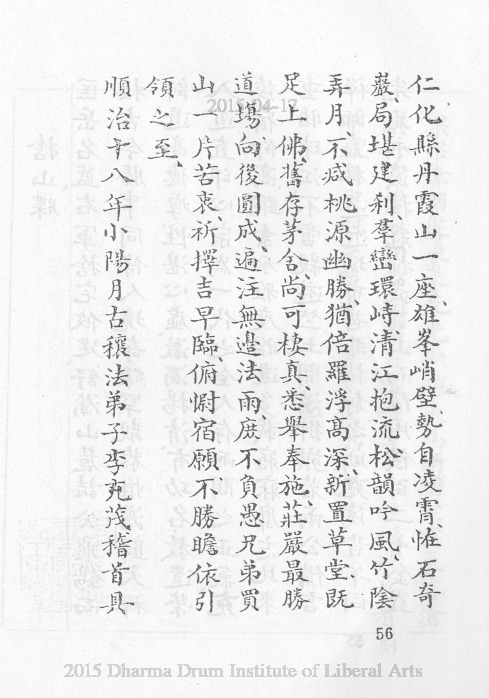 仁化縣丹霞山一座、雄峯峭壁、勢自凌霄、恠石奇
巖、局堪建刹、羣巒環峙、清江抱流、松韻吟風、竹陰
弄月、不減桃源幽勝、猶倍羅浮高深、新置草堂、既
足上佛、舊存茅舍、尚可棲真、悉舉奉施、莊嚴最勝
道場、向後圓成、遍注無邊法雨、庶不負愚兄弟買
山一片苦衷、祈擇吉早臨、俯慰宿願、不勝瞻依引
領之至、
順治十八年小陽月古穰法弟子李充茂稽首具
56
2015-04-17
2015 Dharma Drum Institute of Liberal Arts